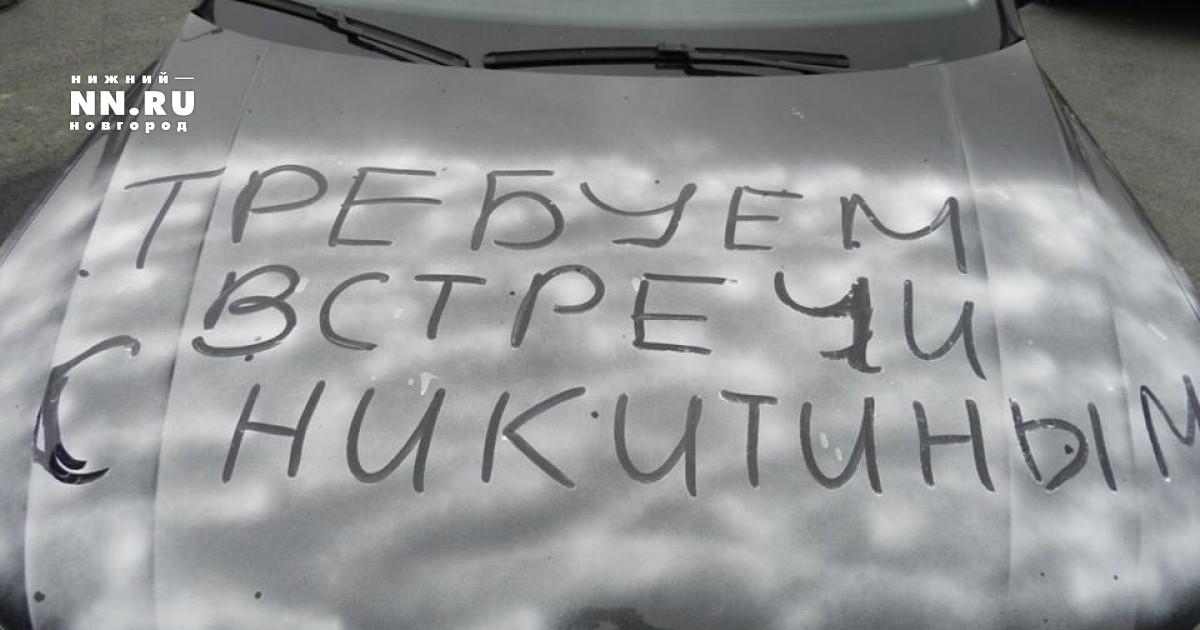 НИЖНИЙ
NN.RU
НОВГОРОД
ТРЕБУЕМ
ВСТРЕЧИ
С НИКИТИНЫМ